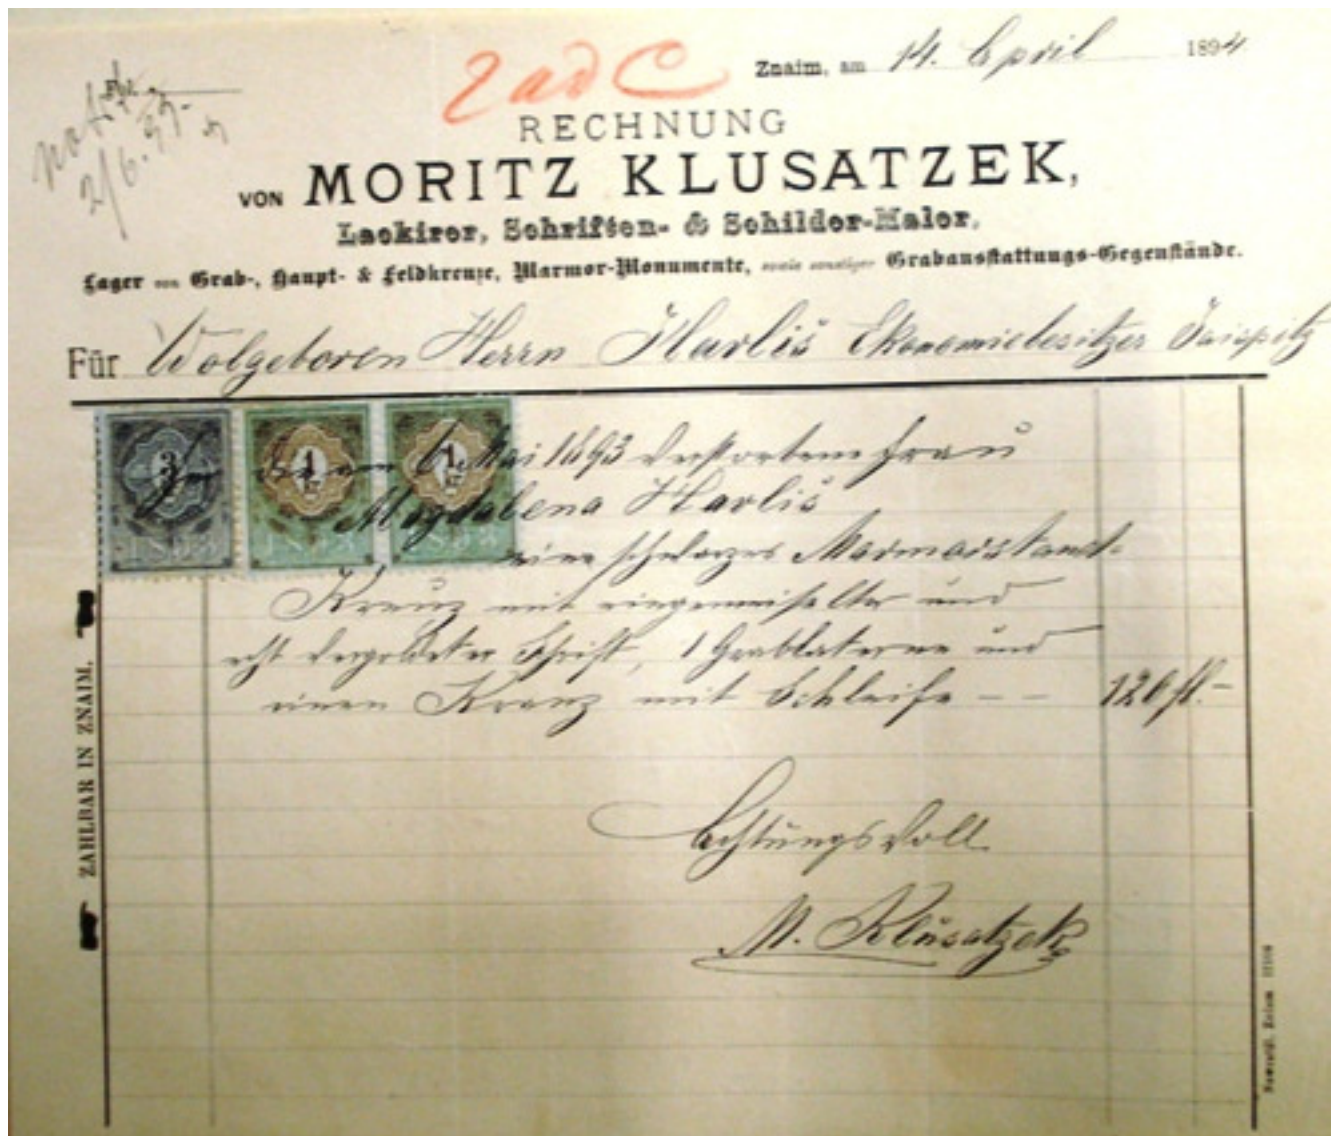 Fol.
2 ad C
Znaim, am 14. April 1894
RECHNUNG
VON MORITZ KLUSATZEK,
Lackirer, Schriften- & Schilder-Maler,
Lager von Grab-, Haupt- & Feldkreuze, Marmor-Monumente, sowie sonstiger Grabausstattungs-Gegenstände.
Für Wolgeboren Herrn Harliš Ekonomiebesitzer Jaispitz
3 1 kr 1 kr
1893 1893 1893
am 6. Mai 1893 verstorbene Frau
Magdalena Harliš
ein schwarzes
Kreuz mit eingemeiselter und
echt vergoldeter Schrift, 1 Grablaterne und
einen Kranz mit Schleife – – 120 fl. –
Achtungsvoll
M. Klusatzek
ZAHLBAR IN ZNAIM.